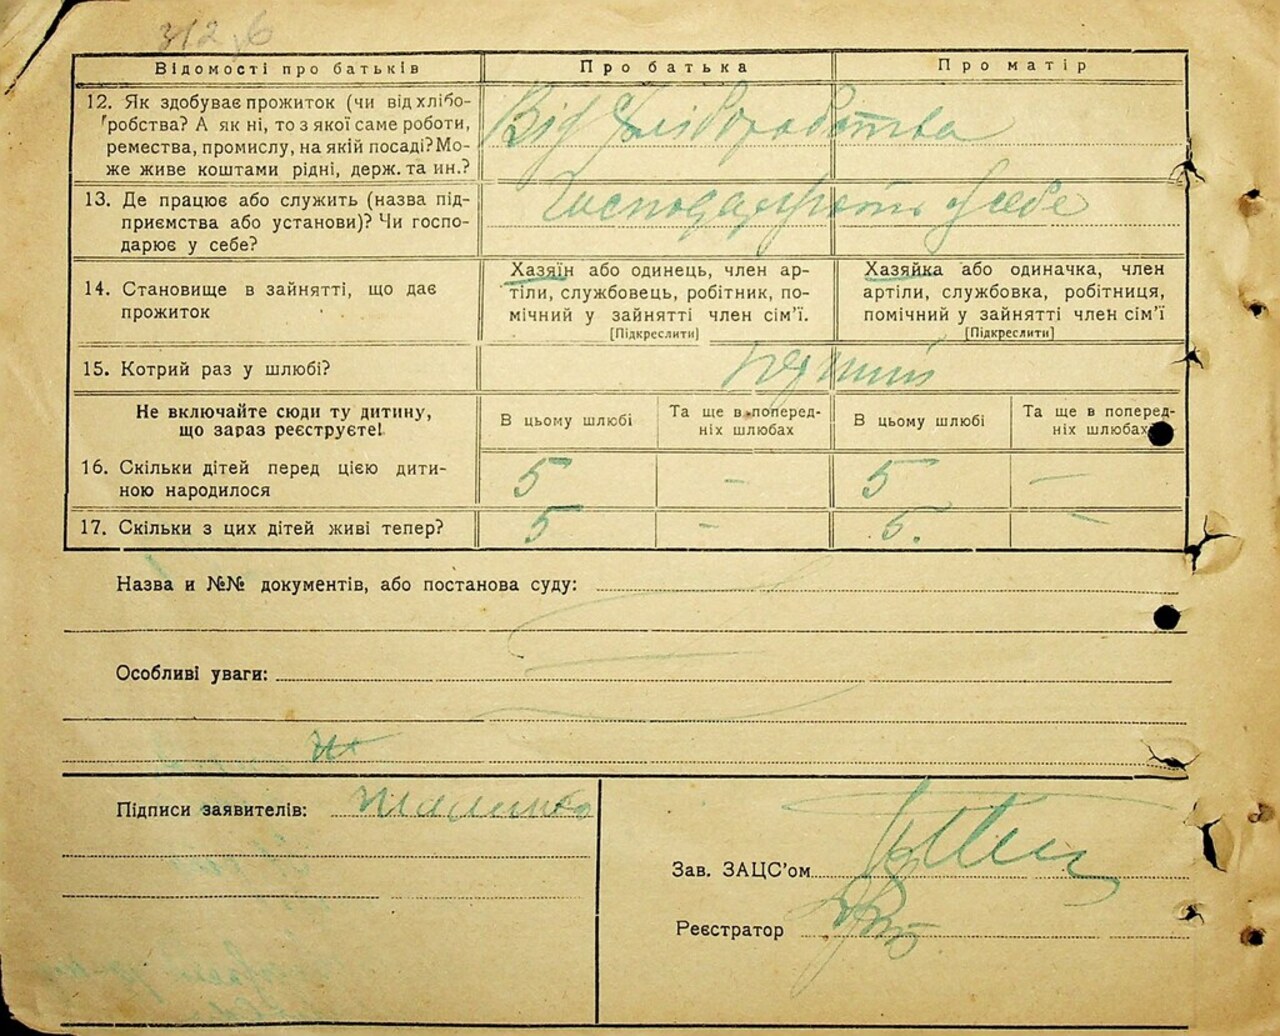 312 зб
Відомості про батьків
Про батька
Про матір
12. Як здобуває прожиток (чи від хлібо-
робства? А як ні, то з якої саме роботи,
ремества, промислу, на якій посаді? Мо-
же живе коштами рідні, держ. та ин.?
Від хліборобства
13. Де працює або служить (назва під-
приємства або установи)? Чи госпо-
дарює у себе?
Господарюють у себе
14. Становище в зайнятті, що дає
прожиток
Хазяїн або одинець, член ар-
тіли, службовець, робітник, по-
мічний у зайнятті член сім'ї.
[Підкреслити]
Хазяйка або одиначка, член
артіли, службовка, робітниця,
помічний у зайнятті член сім'ї
[Підкреслити]
15. Котрий раз у шлюбі?
перший
Не включайте сюди ту дитину,
що зараз реєструєте!
В цьому шлюбі
Та ще в поперед-
ніх шлюбах
В цьому шлюбі
Та ще в поперед-
ніх шлюбах
16. Скільки дітей перед цією дити-
ною народилося
5 - 5 -
17. Скільки з цих дітей живі тепер?
5 - 5. -
Назва и №№ документів, або постанова суду:
Особливі уваги:
Підписи заявителів:
Зав. ЗАЦС'ом
Реєстратор